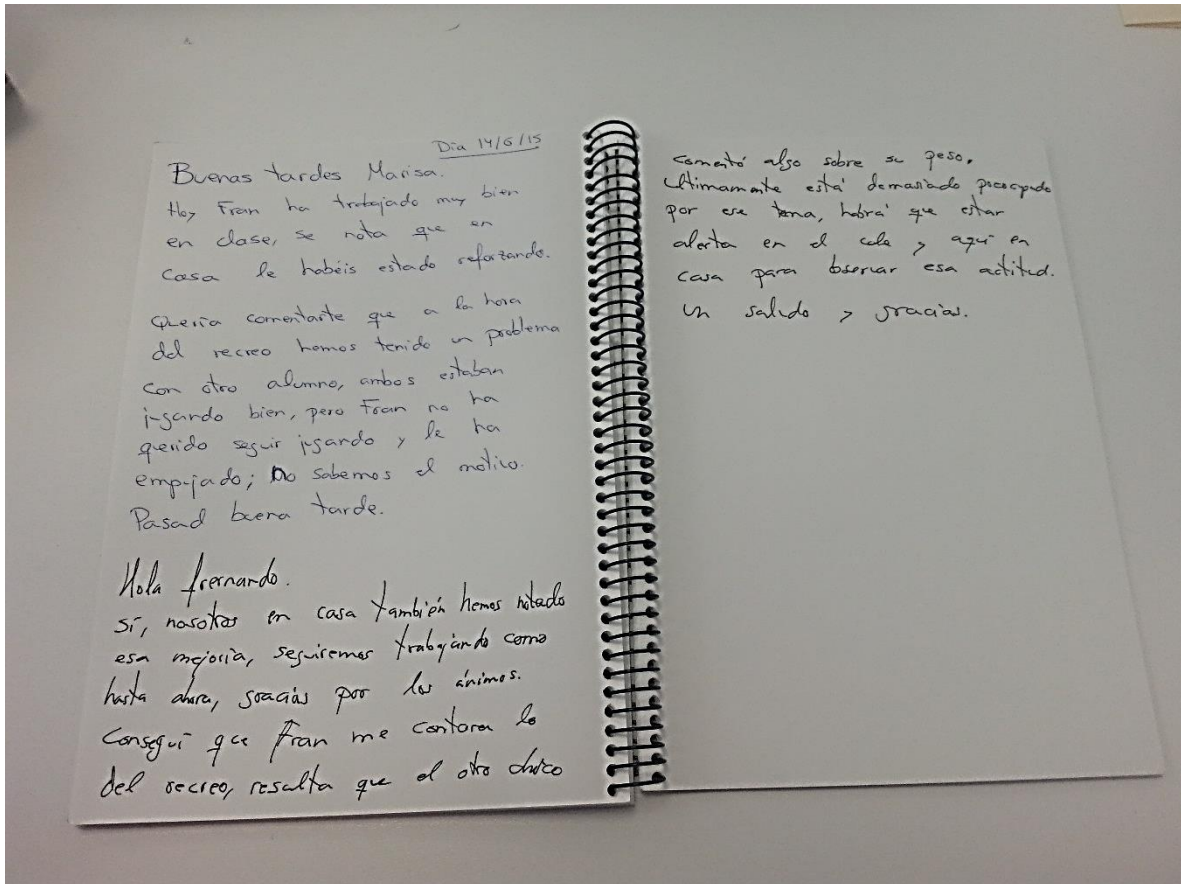 Dia 14/6/15
Buenas tardes Marisa.
Hoy Fran ha trabajado muy bien
en clase, se nota que en
casa le habéis estado reforzando.
Quería comentarte que a la hora
del recreo hemos tenido un problema
con otro alumno, ambos estaban
jugando bien, pero Fran no ha
querido seguir jugando y le ha
empujado; No sabemos el motivo.
Pasad buena tarde.
Hola frernando.
Sí, nosotros en casa también hemos notado
esa mejoría, seguiremos trabajando como
hasta ahora, gracias por los ánimos.
Conseguí que Fran me contara lo
del recreo, resulta que el otro chico
comentó algo sobre su peso.
Ultimamente está demasiado preocupado
por ese tema, habrá que estar
alerta en el cole y aquí en
casa para observar esa actitud.
Un saludo y gracias.